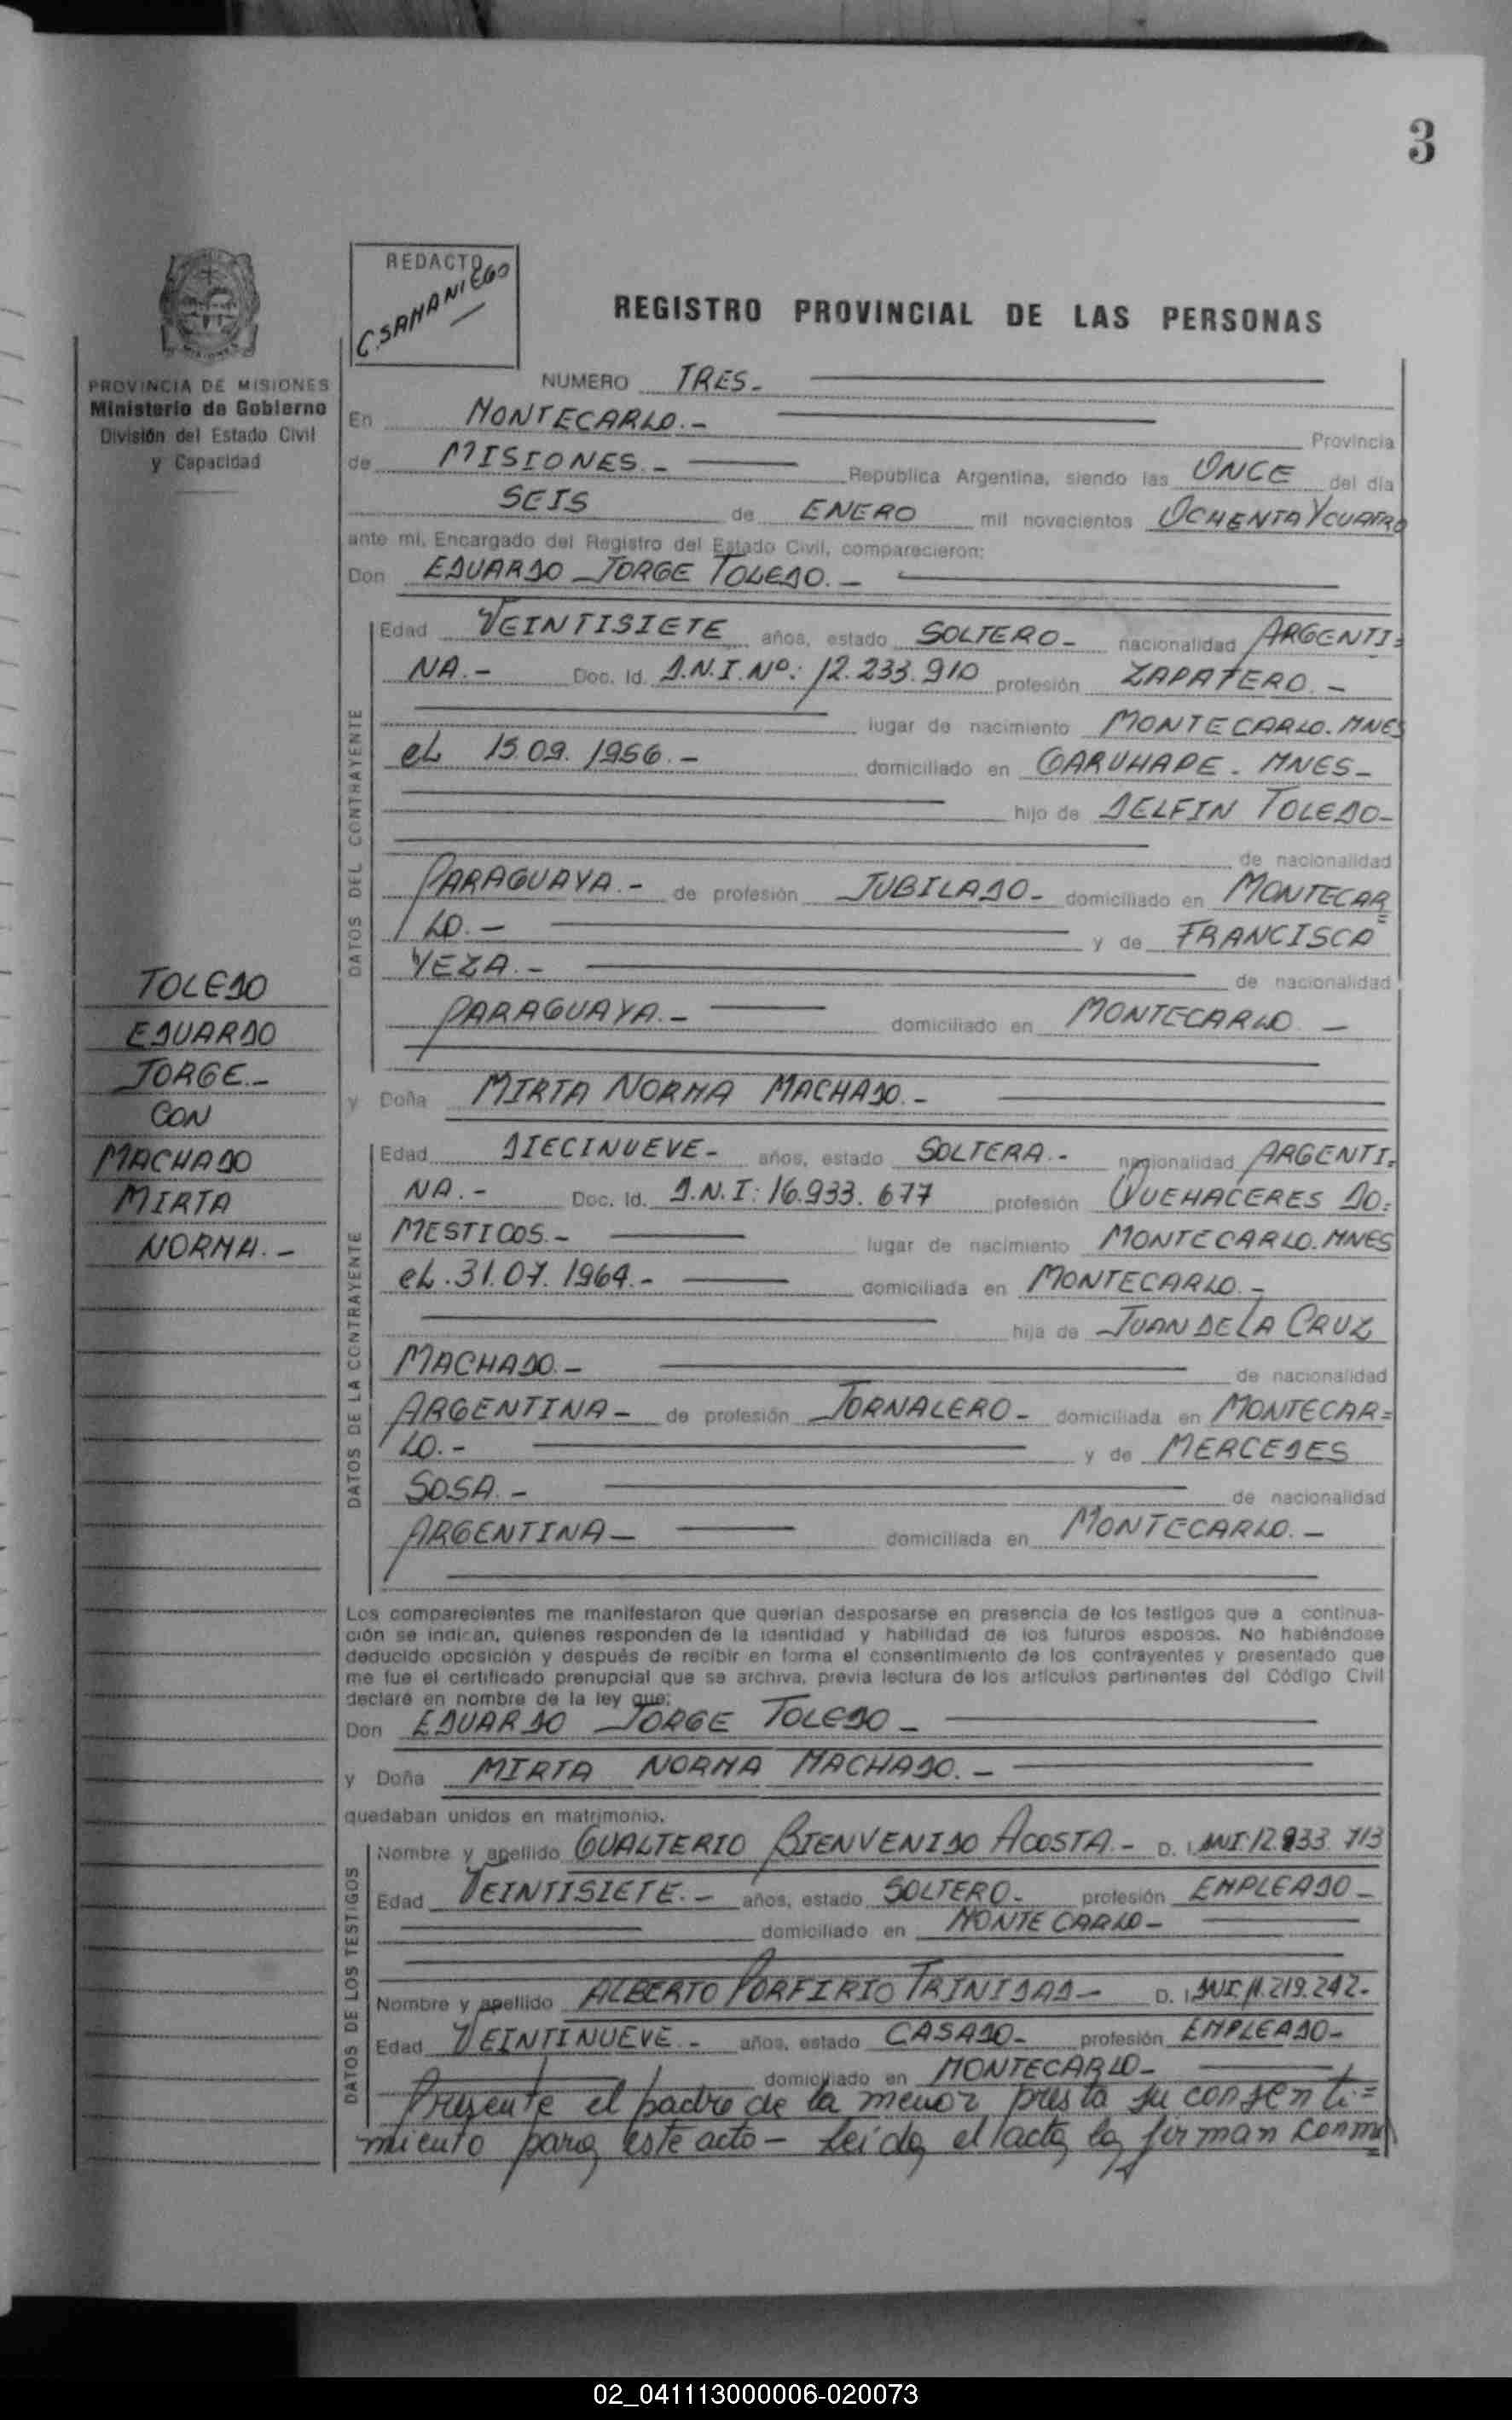 3
REDACTO
C. SAMANIEGO
REGISTRO PROVINCIAL DE LAS PERSONAS
PROVINCIA DE MISIONES
Ministerio de Gobierno
División del Estado Civil
y Capacidad
NUMERO TRES.-
En MONTECARLO.- Provincia
de MISIONES.- República Argentina, siendo las ONCE del día
SEIS de ENERO mil novecientos OCHENTA Y CUATRO
ante mi, Encargado del Registro del Estado Civil, comparecieron:
Don EDUARDO JORGE TOLEDO.-
DATOS DEL CONTRAYENTE
Edad VEINTISIETE años, estado SOLTERO- nacionalidad ARGENTI=
NA.- Doc. Id. D.N.I. Nº: 12.233.910 profesión ZAPATERO.-
lugar de nacimiento MONTECARLO. MNES
eL 15.09.1956.- domiciliado en GARUHAPE - MNES-
hijo de DELFIN TOLEDO-
de nacionalidad
PARAGUAYA.- de profesión JUBILADO- domiciliado en MONTECAR=
LO.- y de FRANCISCA
YEZA.- de nacionalidad
PARAGUAYA.- domiciliado en MONTECARLO.-
y Doña MIRTA NORMA MACHADO.-
TOLEDO
EDUARDO
JORGE.-
CON
MACHADO
MIRTA
NORMA.-
DATOS DE LA CONTRAYENTE
Edad DIECINUEVE- años, estado SOLTERA.- nacionalidad ARGENTI=
NA.- Doc. Id. D.N.I: 16.933.677 profesión QUEHACERES DO=
MESTICOS.- lugar de nacimiento MONTECARLO. MNES
eL. 31.07.1964.- domiciliada en MONTECARLO.-
hija de JUAN DE LA CRUZ
MACHADO.- de nacionalidad
ARGENTINA- de profesión JORNALERO- domiciliada en MONTECAR=
LO.- y de MERCEDES
SOSA.- de nacionalidad
ARGENTINA- domiciliada en MONTECARLO.-
Los comparecientes me manifestaron que querían desposarse en presencia de los testigos que a continua-
ción se indican, quienes responden de la identidad y habilidad de los futuros esposos. No habiéndose
deducido oposición y después de recibir en forma el consentimiento de los contrayentes y presentado que
me fue el certificado prenupcial que se archiva, previa lectura de los artículos pertinentes del Código Civil
declaré en nombre de la ley que:
Don EDUARDO JORGE TOLEDO-
y Doña MIRTA NORMA MACHADO.-
quedaban unidos en matrimonio.
DATOS DE LOS TESTIGOS
Nombre y apellido GUALTERIO BIENVENIDO ACOSTA.- D. I. DNI: 12.933.713
Edad VEINTISIETE.- años, estado SOLTERO- profesión EMPLEADO-
domiciliado en MONTECARLO-
Nombre y apellido ALBERTO PORFIRIO TRINIDAD- D. I. DNI 11.219.242-
Edad VEINTINUEVE.- años, estado CASADO- profesión EMPLEADO-
domiciliado en MONTECARLO-
Presente el padre de la menor presta su consenti=
miento para este acto- Leida el acta la firman conmi=
02_041113000006-020073